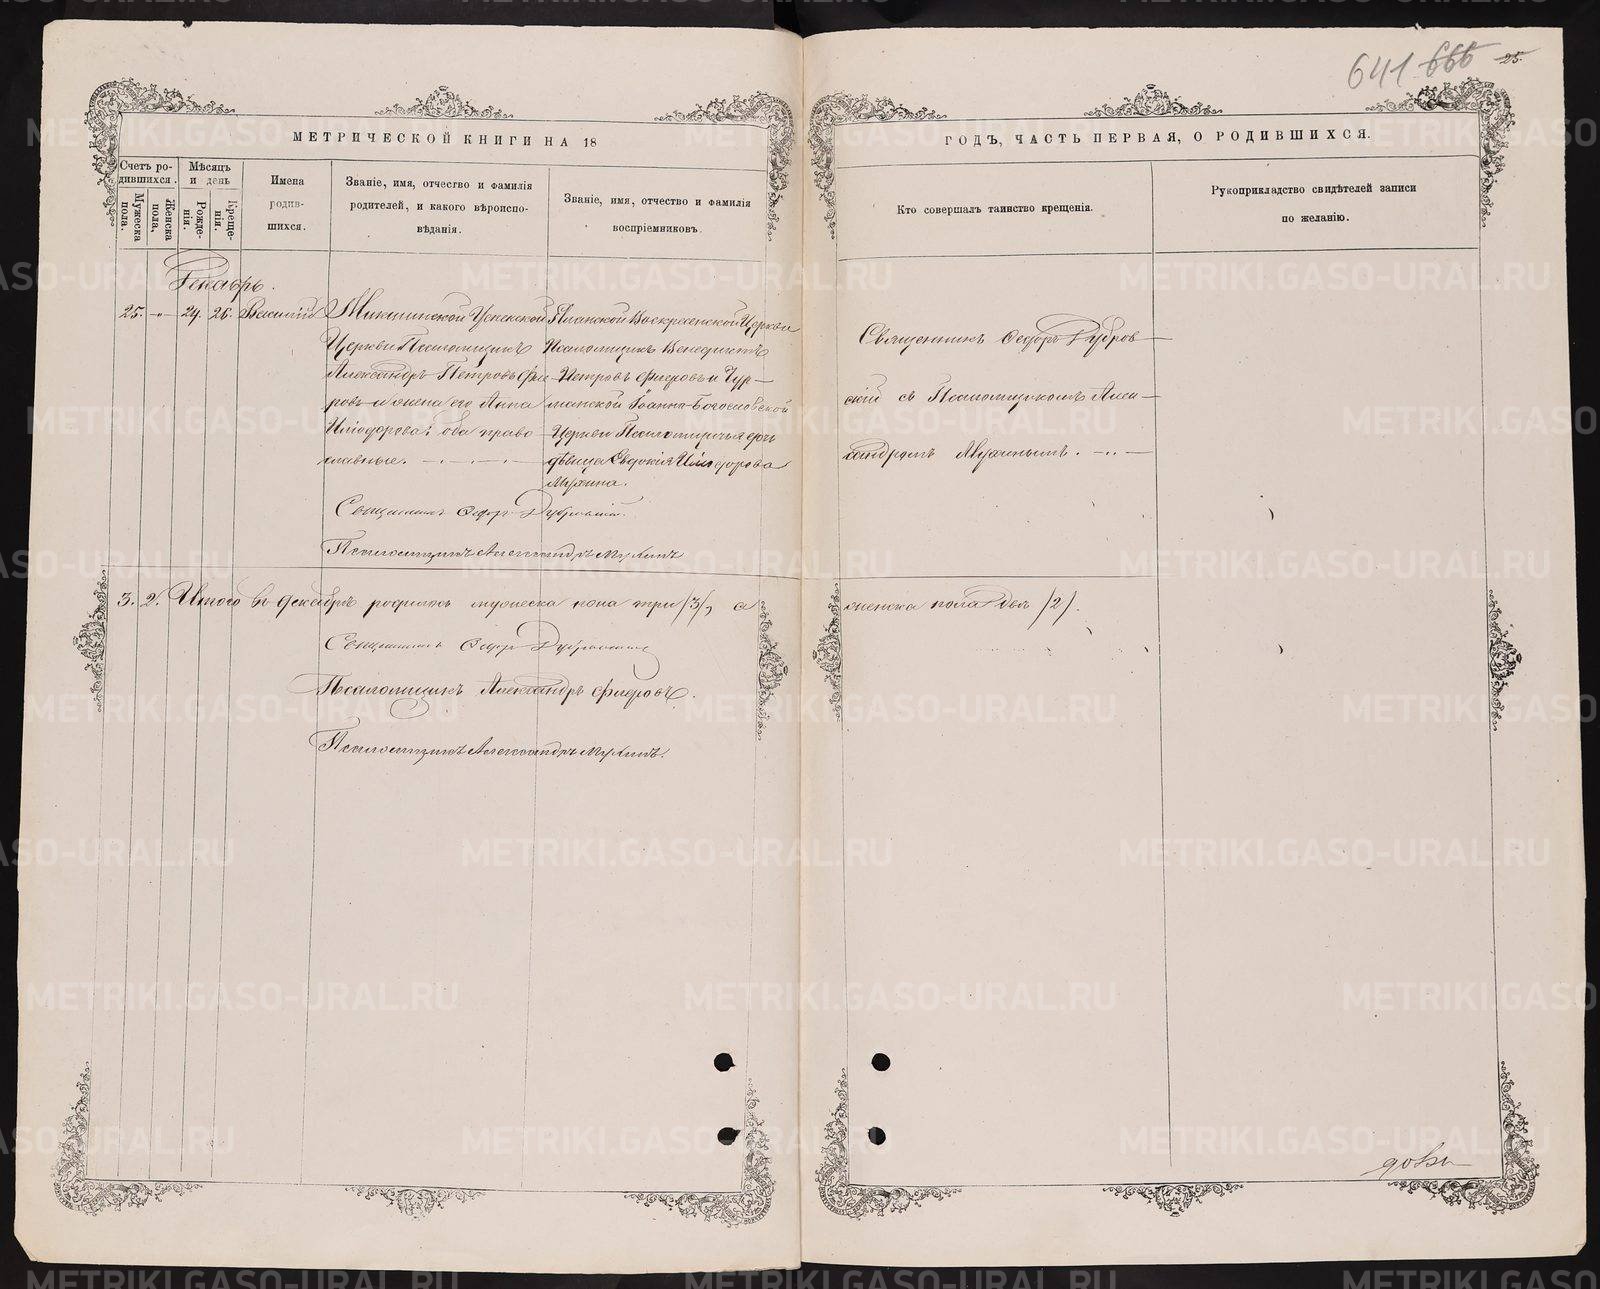 641 666 25.
МЕТРИЧЕСКОЙ КНИГИ НА 18
ГОДЪ, ЧАСТЬ ПЕРВАЯ, О РОДИВШИХСЯ.
Счетъ ро-
дившихся.
Мужеска
пола.
Женска
пола,
Мѣсяцъ
и день
Рожде-
нія.
Креще-
нія.
Имена
родив-
шихся.
Званіе, имя, отчество и фамилія
родителей, и какого вѣроиспо-
вѣданія.
Званіе, имя, отчество и фамилія
воспріемниковъ.
Кто совершалъ таинство крещенія.
Рукоприкладство свидѣтелей записи
по желанію.
Декабрь.
25. -"- 24. 26. Василій
Церкви Псаломщикъ
Александръ Петровъ Фле-
ровъ и жена его Анна
Илиодорова; оба право
славные.
Воскресенской Церкви
Псаломщикъ Венедиктъ
Петровъ Флеровъ и Чур-
манской Іоанно-Богословской
Церкви Псаломщичья дочь
дѣвица Евдокія Илиодорова
Мухина.
Священникъ Ѳедоръ Дубров-
скій съ Псаломщикомъ Алек-
сандромъ Мухинымъ.
Священникъ Ѳедоръ Дубровскій.
Псаломщикъ Александръ Мухинъ
3. 2. Итого въ декабрѣ родилось мужеска пола три /3/, а
женска пола двѣ /2/.
Священникъ Ѳедоръ Дубровскій
Псаломщикъ Александръ Флеровъ.
Псаломщикъ Александръ Мухинъ.
METRIKI.GASO-URAL.RU